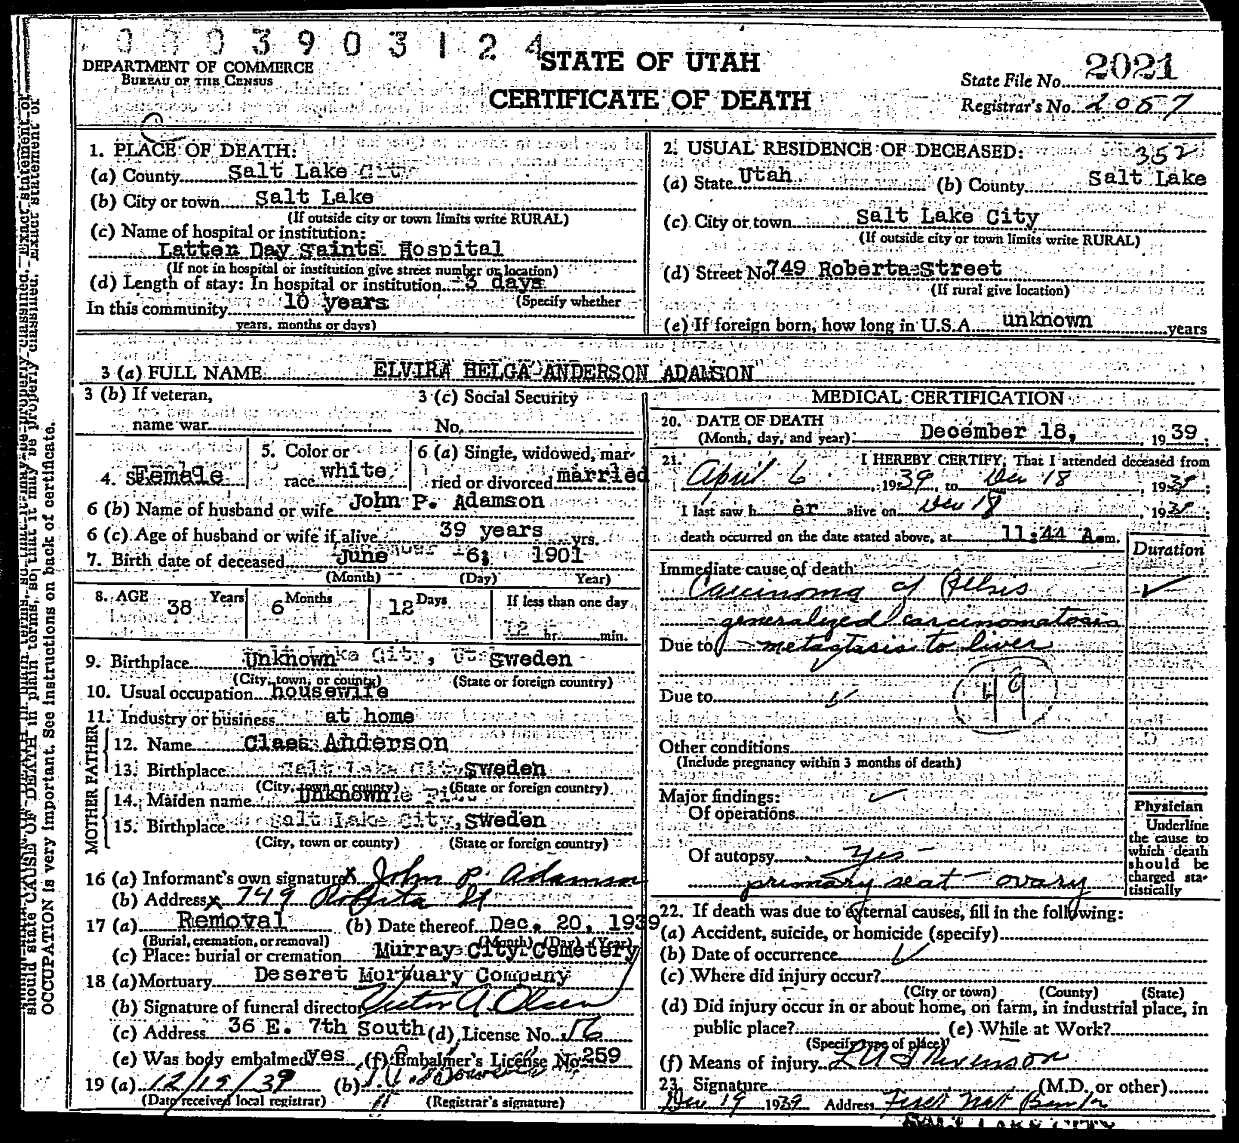 0003903124
STATE OF UTAH
CERTIFICATE OF DEATH
DEPARTMENT OF COMMERCE
BUREAU OF THE CENSUS
State File No. 2021
Registrar's No. 2057
1. PLACE OF DEATH:
(a) County Salt Lake City
(b) City or town Salt Lake
(If outside city or town limits write RURAL)
(c) Name of hospital or institution:
Latter Day Saints Hospital
(If not in hospital or institution give street number or location)
(d) Length of stay: In hospital or institution 3 days
In this community 10 years (Specify whether
years, months or days)
2. USUAL RESIDENCE OF DECEASED: 352
(a) State Utah (b) County Salt Lake
(c) City or town Salt Lake City
(If outside city or town limits write RURAL)
(d) Street No. 749 Roberta Street
(If rural give location)
(e) If foreign born, how long in U.S.A. unknown years
3 (a) FULL NAME ELVIRA HELGA ANDERSON ADAMSON
3 (b) If veteran,
name war
3 (c) Social Security
No.
4. Sex Female
5. Color or
race white
6 (a) Single, widowed, mar-
ried or divorced married
6 (b) Name of husband or wife John P. Adamson
6 (c) Age of husband or wife if alive 39 years yrs.
7. Birth date of deceased June 6, 1901
(Month) (Day) Year)
8. AGE 38 Years 6 Months 12 Days If less than one day
hr. min.
9. Birthplace Unknown Sweden
(City, town, or county) (State or foreign country)
10. Usual occupation housewife
11. Industry or business at home
FATHER
12. Name Claes Anderson
13. Birthplace Salt Lake City Sweden
(City, town or county) (State or foreign country)
MOTHER
14. Maiden name Unknown
15. Birthplace Salt Lake City, Sweden
(City, town or county) (State or foreign country)
16 (a) Informant's own signature x John P. Adamson
(b) Address x 749 Roberta St
17 (a) Removal (b) Date thereof Dec. 20, 1939
(Burial, cremation, or removal) (Month) (Day) (Year)
(c) Place: burial or cremation Murray City Cemetery
18 (a) Mortuary Deseret Mortuary Company
(b) Signature of funeral director Victor A. Olsen
(c) Address 36 E. 7th South (d) License No. 56
(e) Was body embalmed yes (f) Embalmer's License No. 259
19 (a) 12/19/39 (b)
(Date received local registrar) (Registrar's signature)
MEDICAL CERTIFICATION
20. DATE OF DEATH
(Month, day, and year) December 18, 1939;
21. I HEREBY CERTIFY, That I attended deceased from
April 6 1939 to Dec 18, 1939;
I last saw her alive on Dec 18, 1939;
death occurred on the date stated above, at 11:44 A.m.
Duration
Immediate cause of death:
Carcinoma of Pelvis
generalized carcinomatosis
Due to metastasis to liver
Due to
49
Other conditions
(Include pregnancy within 3 months of death)
Major findings:
Of operations
Of autopsy yes
primary seat ovary
Physician
Underline
the cause to
which death
should be
charged sta-
tistically
22. If death was due to external causes, fill in the following:
(a) Accident, suicide, or homicide (specify)
(b) Date of occurrence
(c) Where did injury occur?
(City or town) (County) (State)
(d) Did injury occur in or about home, on farm, in industrial place, in
public place? (e) While at Work?
(Specify type of place)
(f) Means of injury
L A Stevenson
23. Signature (M.D. or other)
Dec 19 1939 Address First Nat Bank
SALT LAKE CITY
should state CAUSE OF DEATH in plain terms, so that it may be properly classified. Exact statement of
OCCUPATION is very important. See instructions on back of certificate.